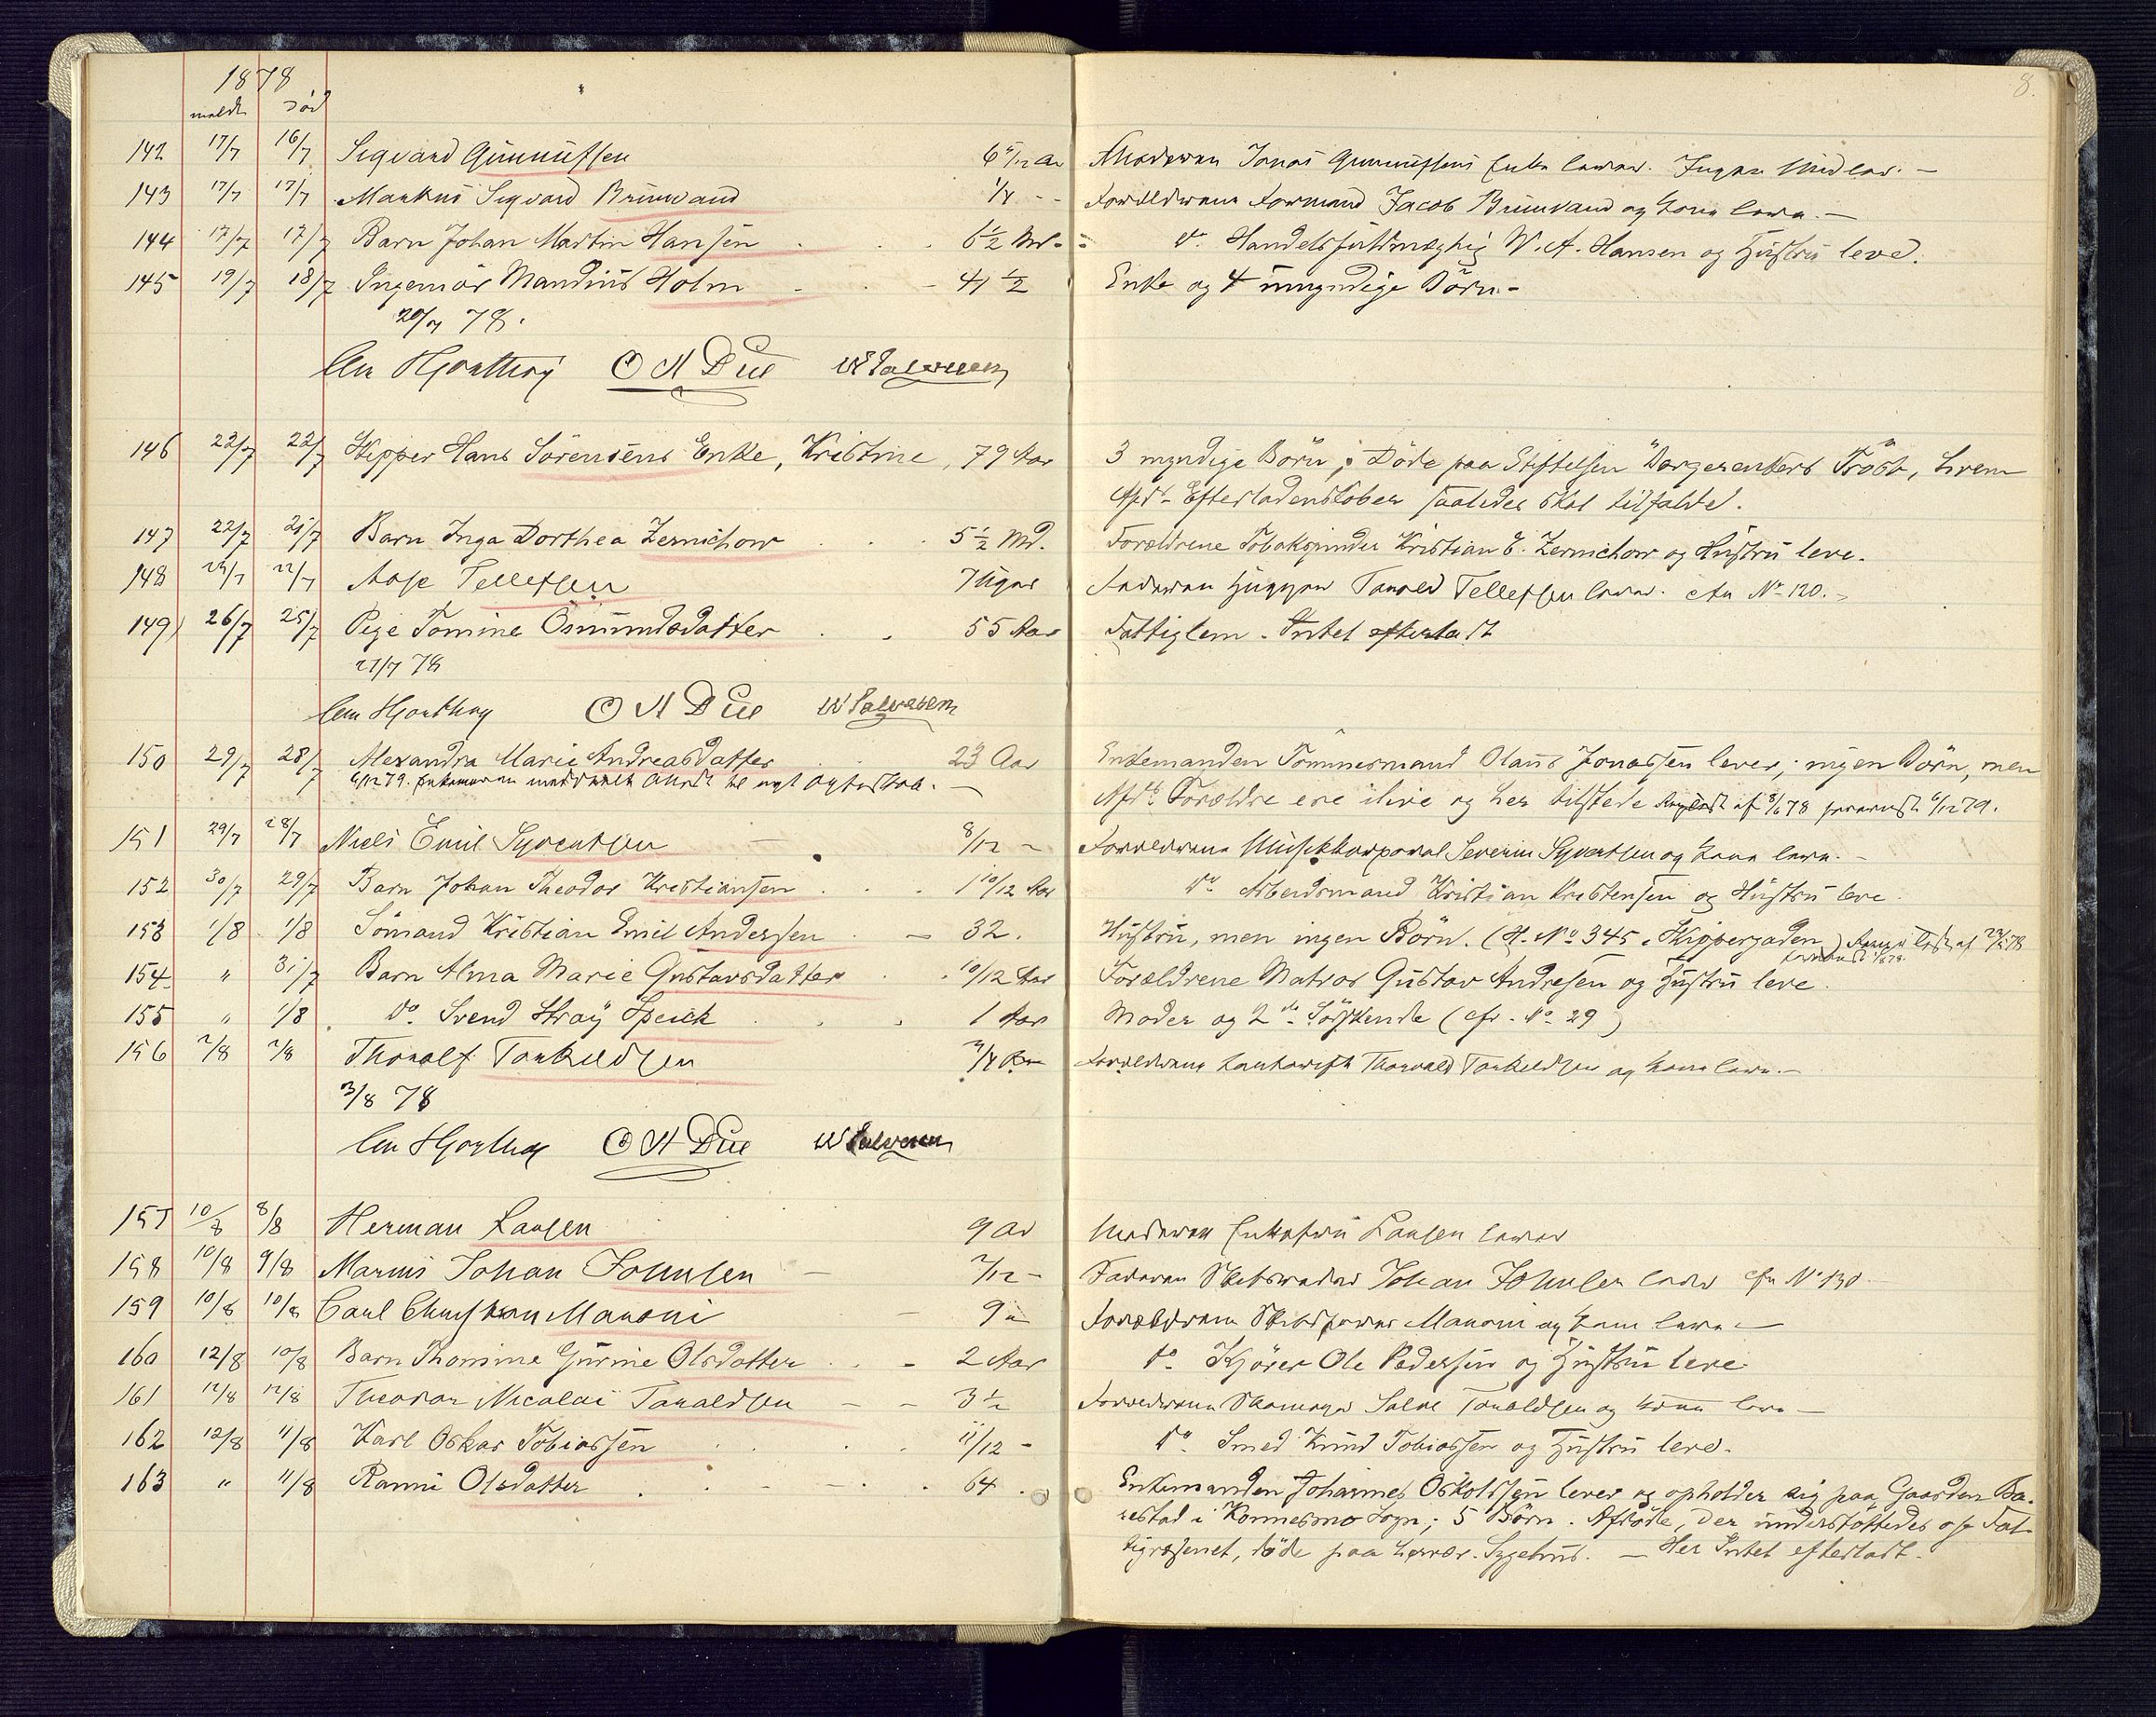 1878
8.
meldt død
142 17/7 16/7 Sigvard Gunnufsen 6 5/12 Ar Moderen Jonas Gunnufsens Enke lever. Ingen Midler. —
143 17/7 17/7 Markus Sigvard Bruuvand 1/4 - - Forældrene Formand Jacob Bruuvand og Kone leve. —
144 17/7 17/7 Barn Johan Martin Hansen . . . 6½ Md. Do. Handelsfuldmægtig W. A. Hansen og Hustru leve.
145 19/7 18/7 Ingemar Mandius Holm - . - 41½ Enke og 4 umyndige Börn -
20/7 78.
Chr Hjorthøy O N Due W Salvesen
146 23/7 22/7 Skipper Hans Sörensens Enke, Kristine, 79 Aar 3 myndige Börn; Döde paa Stiftelsen Borgerenkers Tröst, hvem
Afd. Efterladenskaber saaledes skal tilfalde.
147 22/7 21/7 Barn Inga Dorthea Zernichow . . . 5½ Md. Forældrene Tobakspinder Kristian E. Zernichow og Hustru leve.
148 24/7 22/7 Aase Tellefsen 7 Uger Faderen Hugger Tarald Tellefsen lever. cfr No 120.
149 26/7 25/7 Pige Tomine Osmundsdatter . . 55 Aar Fattiglem. Intet efterladt
27/7 78
Chr Hjorthøy O N Due W Salvesen
150 29/7 28/7 Alexandra Marie Andreasdatter . . 23 Aar Enkemanden Tömmermand Olaus Jonassen lever; ingen Börn, men
6/12 79. Enkemanden meddelt Attest til nyt Ægteskab. —
Afds Forældre ere ilive og her tilstede af 8/6 78 6/12 79.
151 29/7 28/7 Niels Emil Syvertsen — 8/12 - Forældrene Musikkorporal Severin Syvertsen og Kone leve. -
152 30/7 29/7 Barn Johan Theodor Kristiansen . . . 1 10/12 Aar Do. Arbeidsmand Kristian Kristensen og Hustru leve.
153 1/8 1/8 Sömand Kristian Emil Andersen . - 32. Hustru, men ingen Börn. (H. No 345 i Skippergaden)
154 " 31/7 Barn Alma Marie Gustavsdatter . . 10/12 Aar Forældrene Matros Gustav Andresen og Hustru leve.
155 " 1/8 . Do. Svend Stray Speich . . . 1 Aar Moder og 2de Söskende (cfr. No. 29)
156 2/8 2/8 Thoralf Tarkildsen 3/4 Forældrene Thorvald Tarkildsen og Kone leve. —
3/8 78
Chr Hjorthøy O N Due W Salvesen
157 10/8 8/8 Herman Larsen 9 Ar Moderen Enkefru Larsen lever
158 10/8 9/8 Marius Johan Johnsen — 2/12 - Faderen Johan Johnsen lever cfr No 130
159 10/8 10/8 Carl Christian Maroni — 9 Forældrene Maroni og Kone leve —
160 12/8 10/8 Barn Thomine Gurine Olsdatter . . - 2 Aar Do. Kjörer Ole Pedersen og Hustru leve.
161 12/8 12/8 Theodor Nicolai Taraldsen — - 3½ Forældrene Skomager Salve Taraldsen og Kone leve —
162 12/8 11/8 Karl Oskar Tobiassen . . . . 11/12 - Do. Smed Knud Tobiassen og Hustru leve.
163 " 11/8 Ranni Olsdatter . . - - . 64. Enkemanden Johannes Oskolssen lever og opholder sig paa Gaarden Ba-
restad i Konnesmo Sogn; 5 Börn. Afdöde, der understöttedes af Fat-
tigvæsenet, döde paa herv. Sygehus. — Her Intet efterladt.